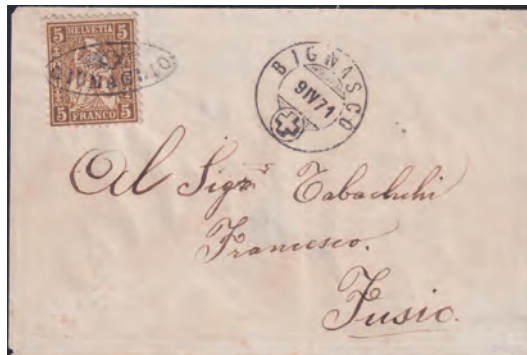 5 HELVETIA 5
GIUMAGLIO
5 FRANCO 5
BIGNASCO
9 IV 71
Al Sigr Tabachhi
Francesco.
Fusio.